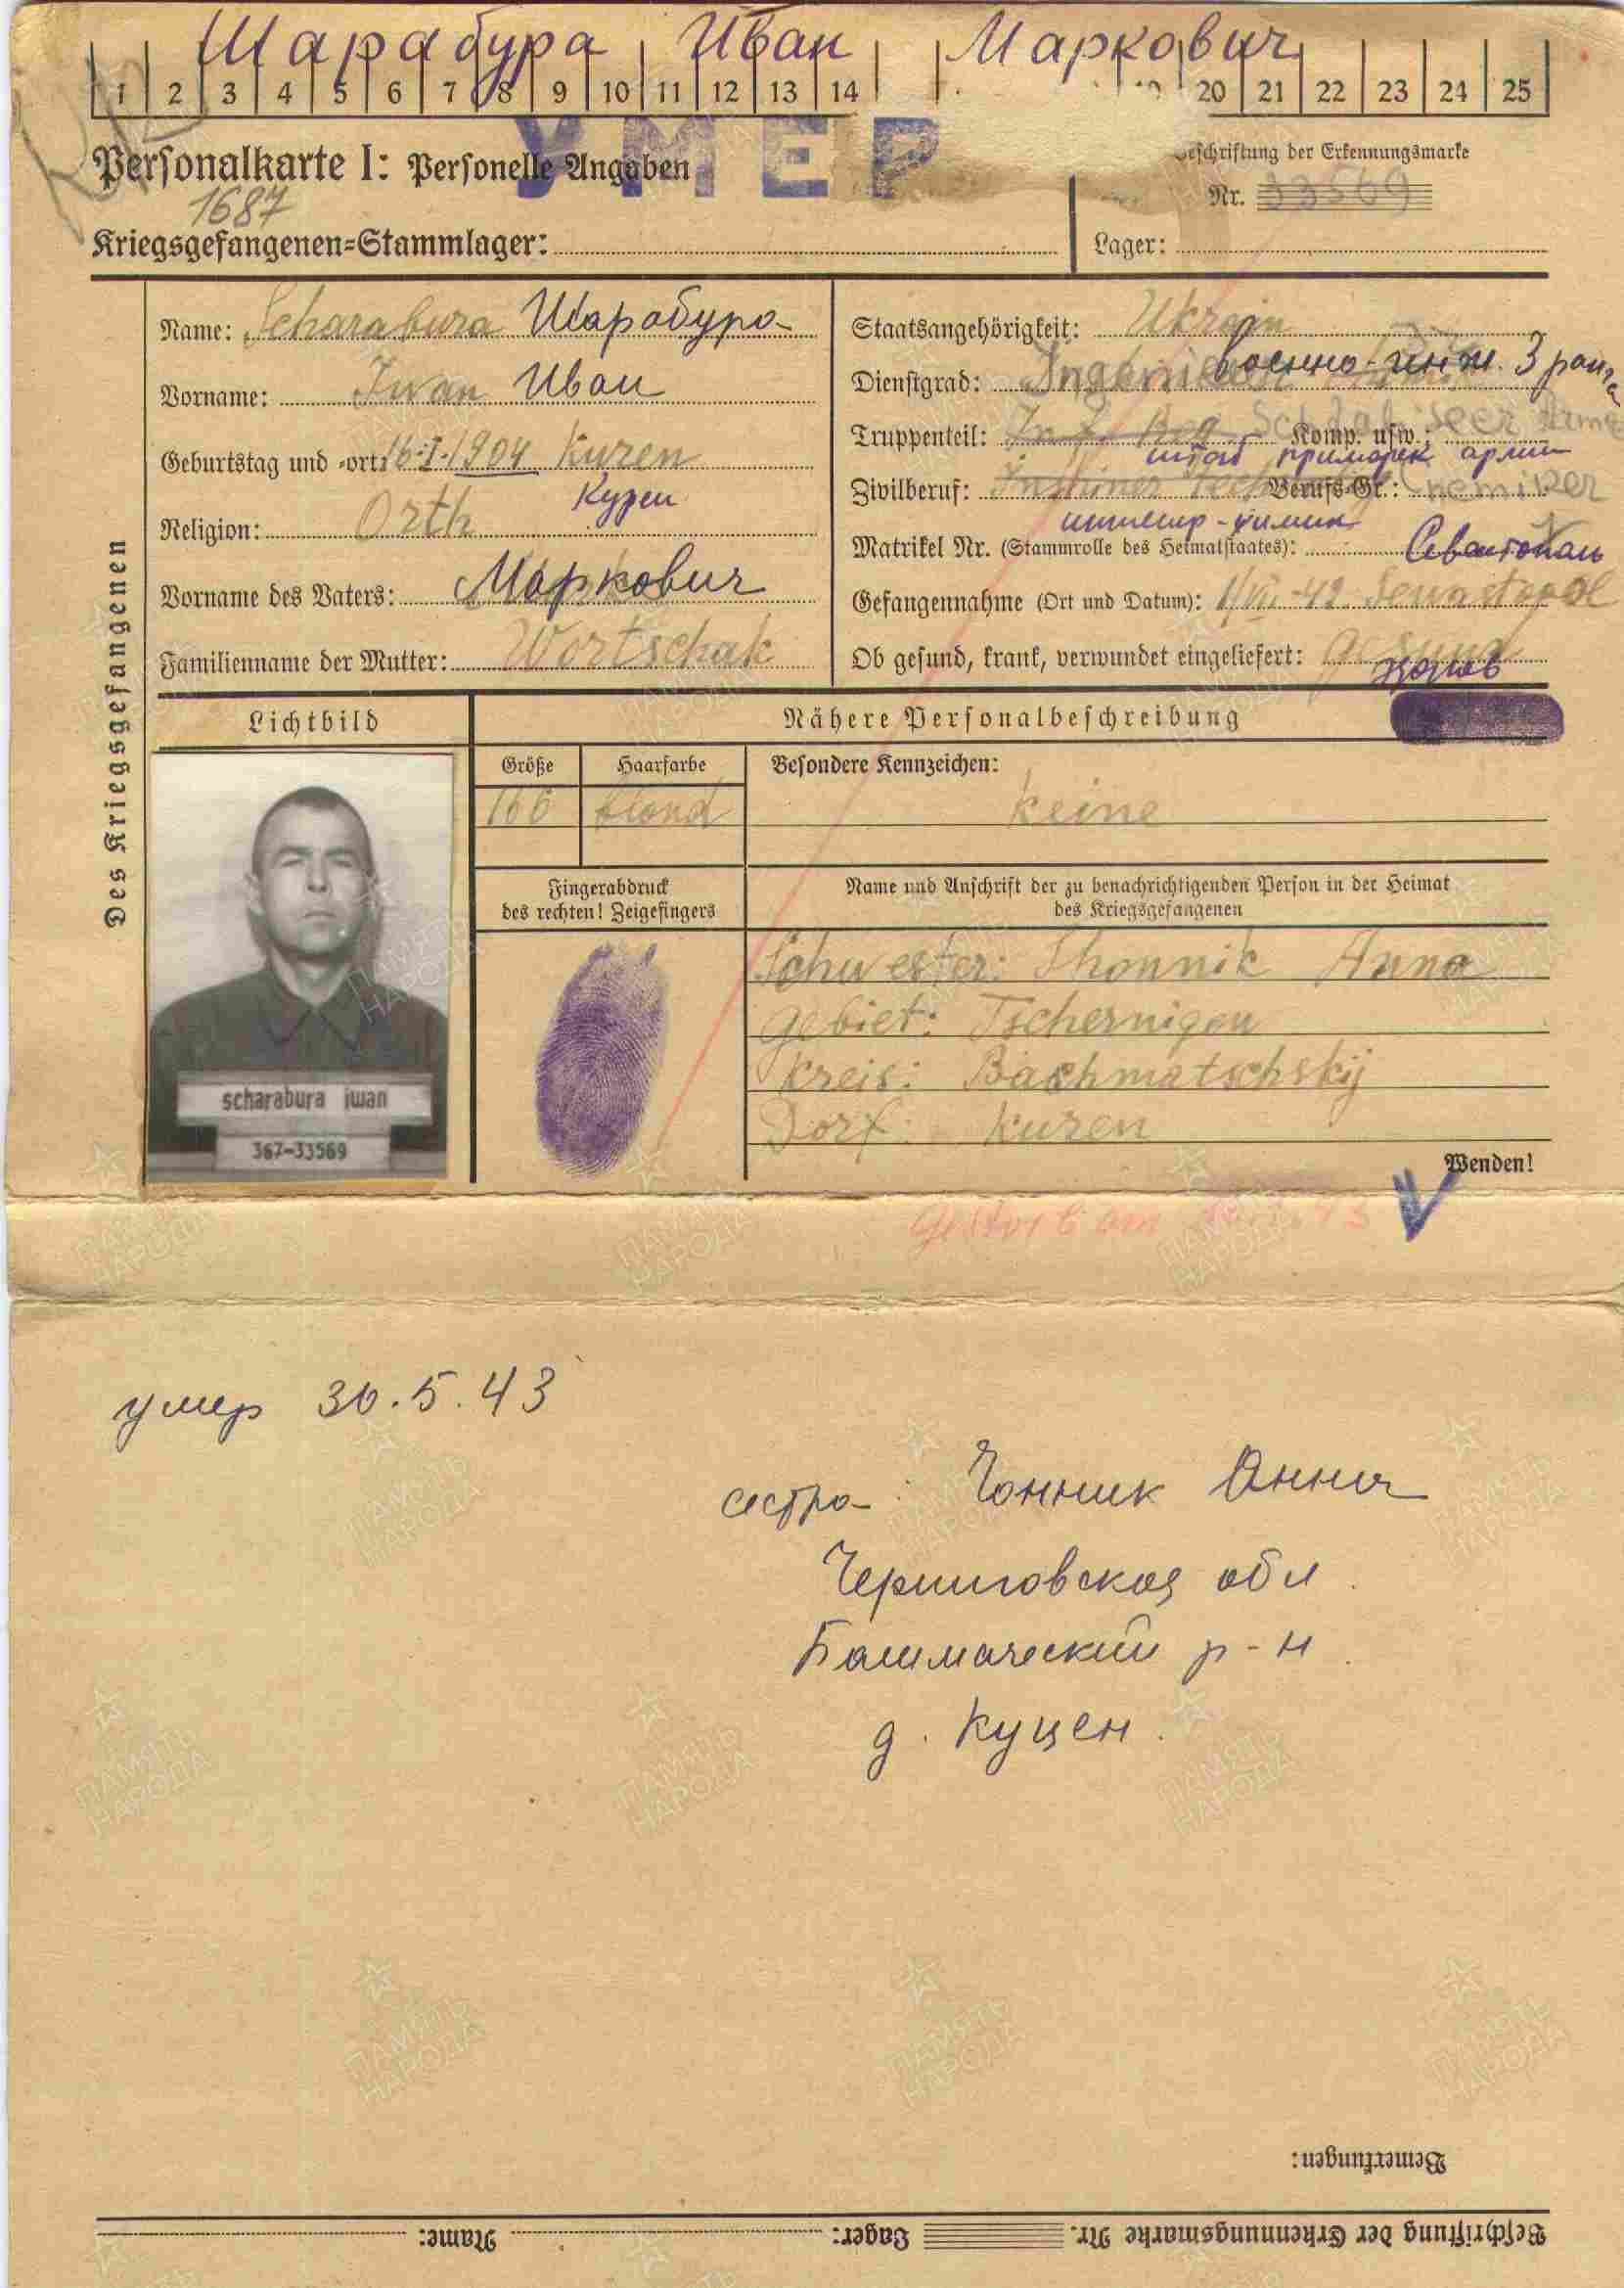 Шарабура Иван Маркович
1 2 3 4 5 6 7 8 9 10 11 12 13 14 20 21 22 23 24 25
УМЕР
Personalkarte I: Personelle Angaben
Beschriftung der Erkennungsmarke
Nr. 33569
1687
Kriegsgefangenen-Stammlager:
Lager:
Des Kriegsgefangenen
Name: Scharabura Шарабура
Vorname: Iwan Иван
Geburtstag und -ort: 16.I.1904 Kuren
Куцен
Religion: Orth
Vorname des Vaters: Маркович
Familienname der Mutter: Wortschak
Staatsangehörigkeit: Ukrain
Dienstgrad: Ingenieur военно-инж. 3 ранга
Truppenteil: Komp. usw.:
штаб приморск армии
Zivilberuf: Berufs-Gr.: Chemiker
инженер-химик
Matrikel Nr. (Stammrolle des Heimatstaates): Севастополь
Gefangennahme (Ort und Datum): 1/VII-42 Sewastopol
Ob gesund, krank, verwundet eingeliefert: gesund
здоров
Lichtbild
Nähere Personalbeschreibung
Größe
Haarfarbe
Besondere Kennzeichen:
166
blond
keine
Fingerabdruck
des rechten! Zeigefingers
Name und Anschrift der zu benachrichtigenden Person in der Heimat
des Kriegsgefangenen
Schwester: Thonnik Anna
Gebiet: Tschernigow
Kreis: Bachmatschskij
Dorf: Kuren
scharabura iwan
367-33569
Wenden!
Gestorben am 43
умер 30.5.43
сестра: Чонник Анна
Черниговская обл.
Башмаческий р-н.
д. Куцен.
Bemerkungen:
Beschriftung der Erkennungsmarke Nr. Lager: Name:
ПАМЯТЬ НАРОДА